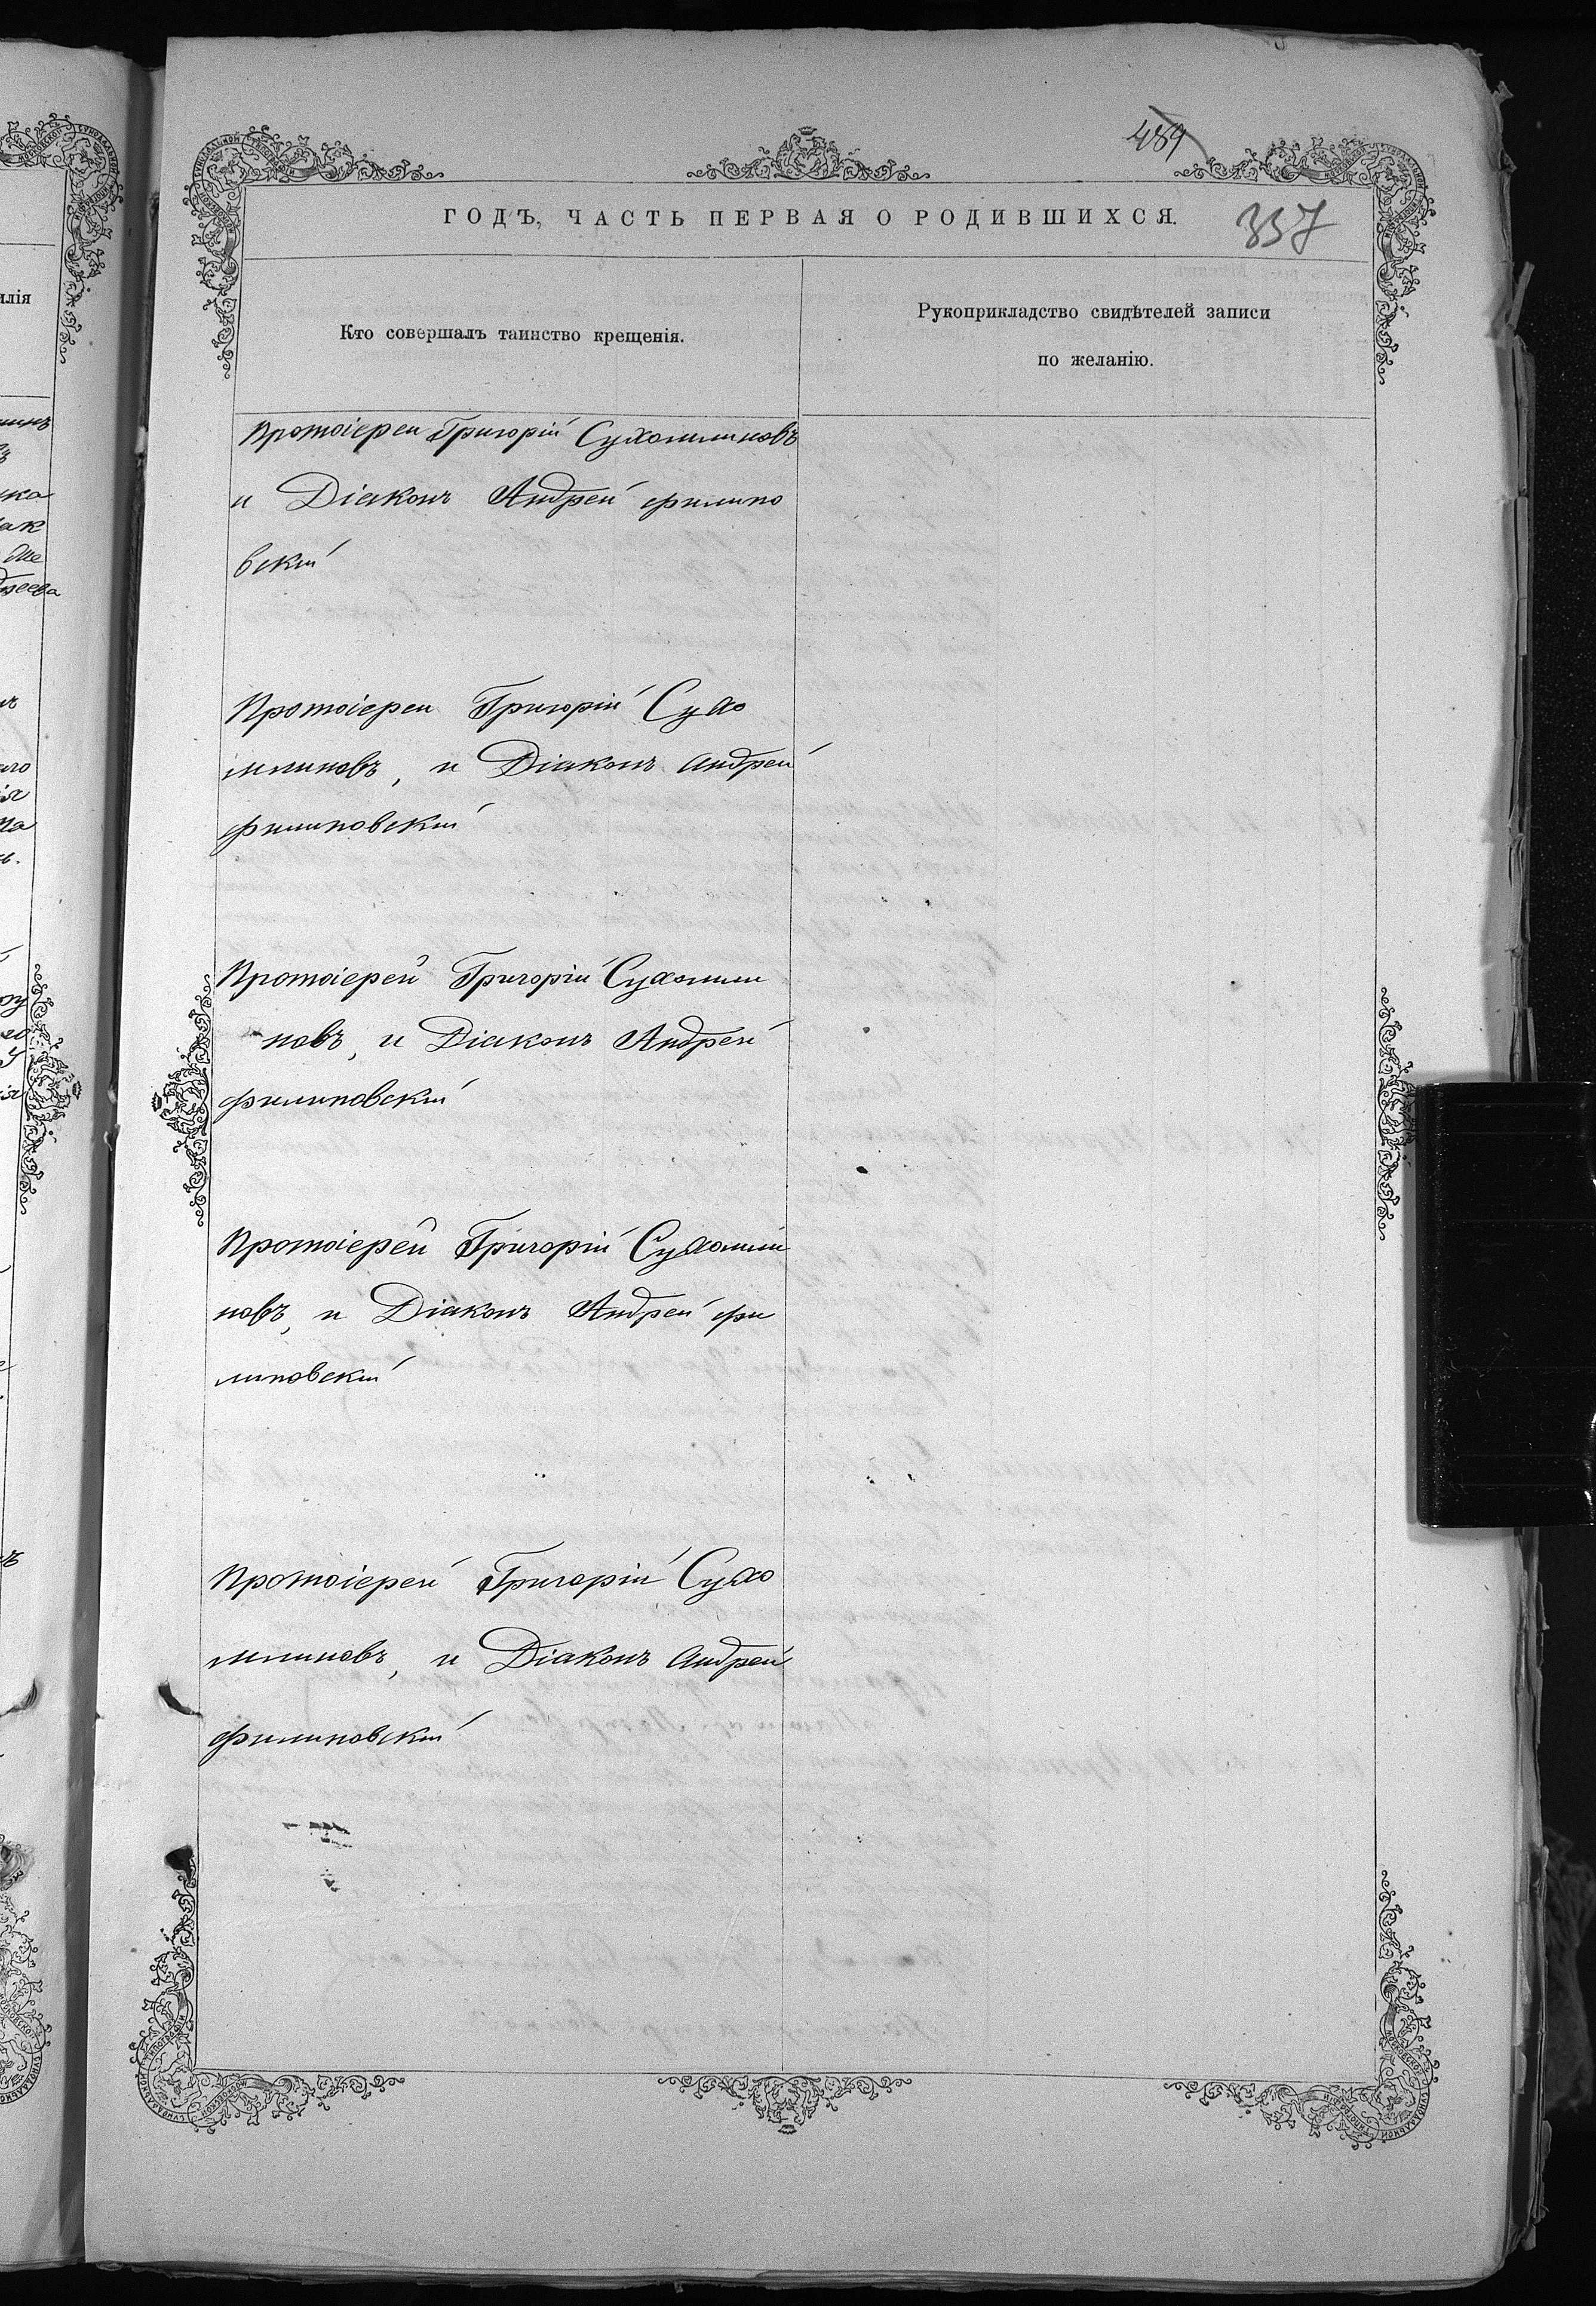 489
ГОДЪ, ЧАСТЬ ПЕРВАЯ О РОДИВШИХСЯ.
337
Кто совершалъ таинство крещенія.
Рукоприкладство свидѣтелей записи
по желанію.
Протоіерей Григорій Сухомлиновъ
и Діаконъ Андрей Филипо
вскій
Протоіерей Григорій Сухо
млиновъ, и Діаконъ Андрей
Филиповскій
Протоіерей Григорій Сухомли
новъ, и Діаконъ Андрей
Филиповскій
Протоіерей Григорій Сухомли
новъ, и Діаконъ Андрей Фи
липовскій
Протоіерей Григорій Сухо
млиновъ, и Діаконъ Андрей
Филиповскій